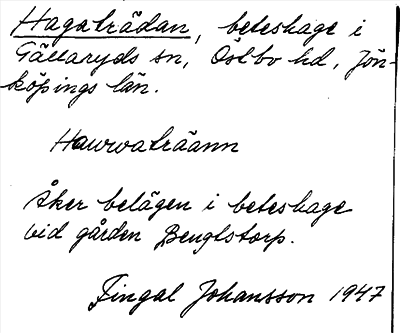 Hagaträdan, beteshage i
Gällaryds sn, Östbo hd, Jön-
köpings län.
Hawwaträann
Åker belägen i beteshage
vid gården Bengtstorp.
Fingal Johansson 1947